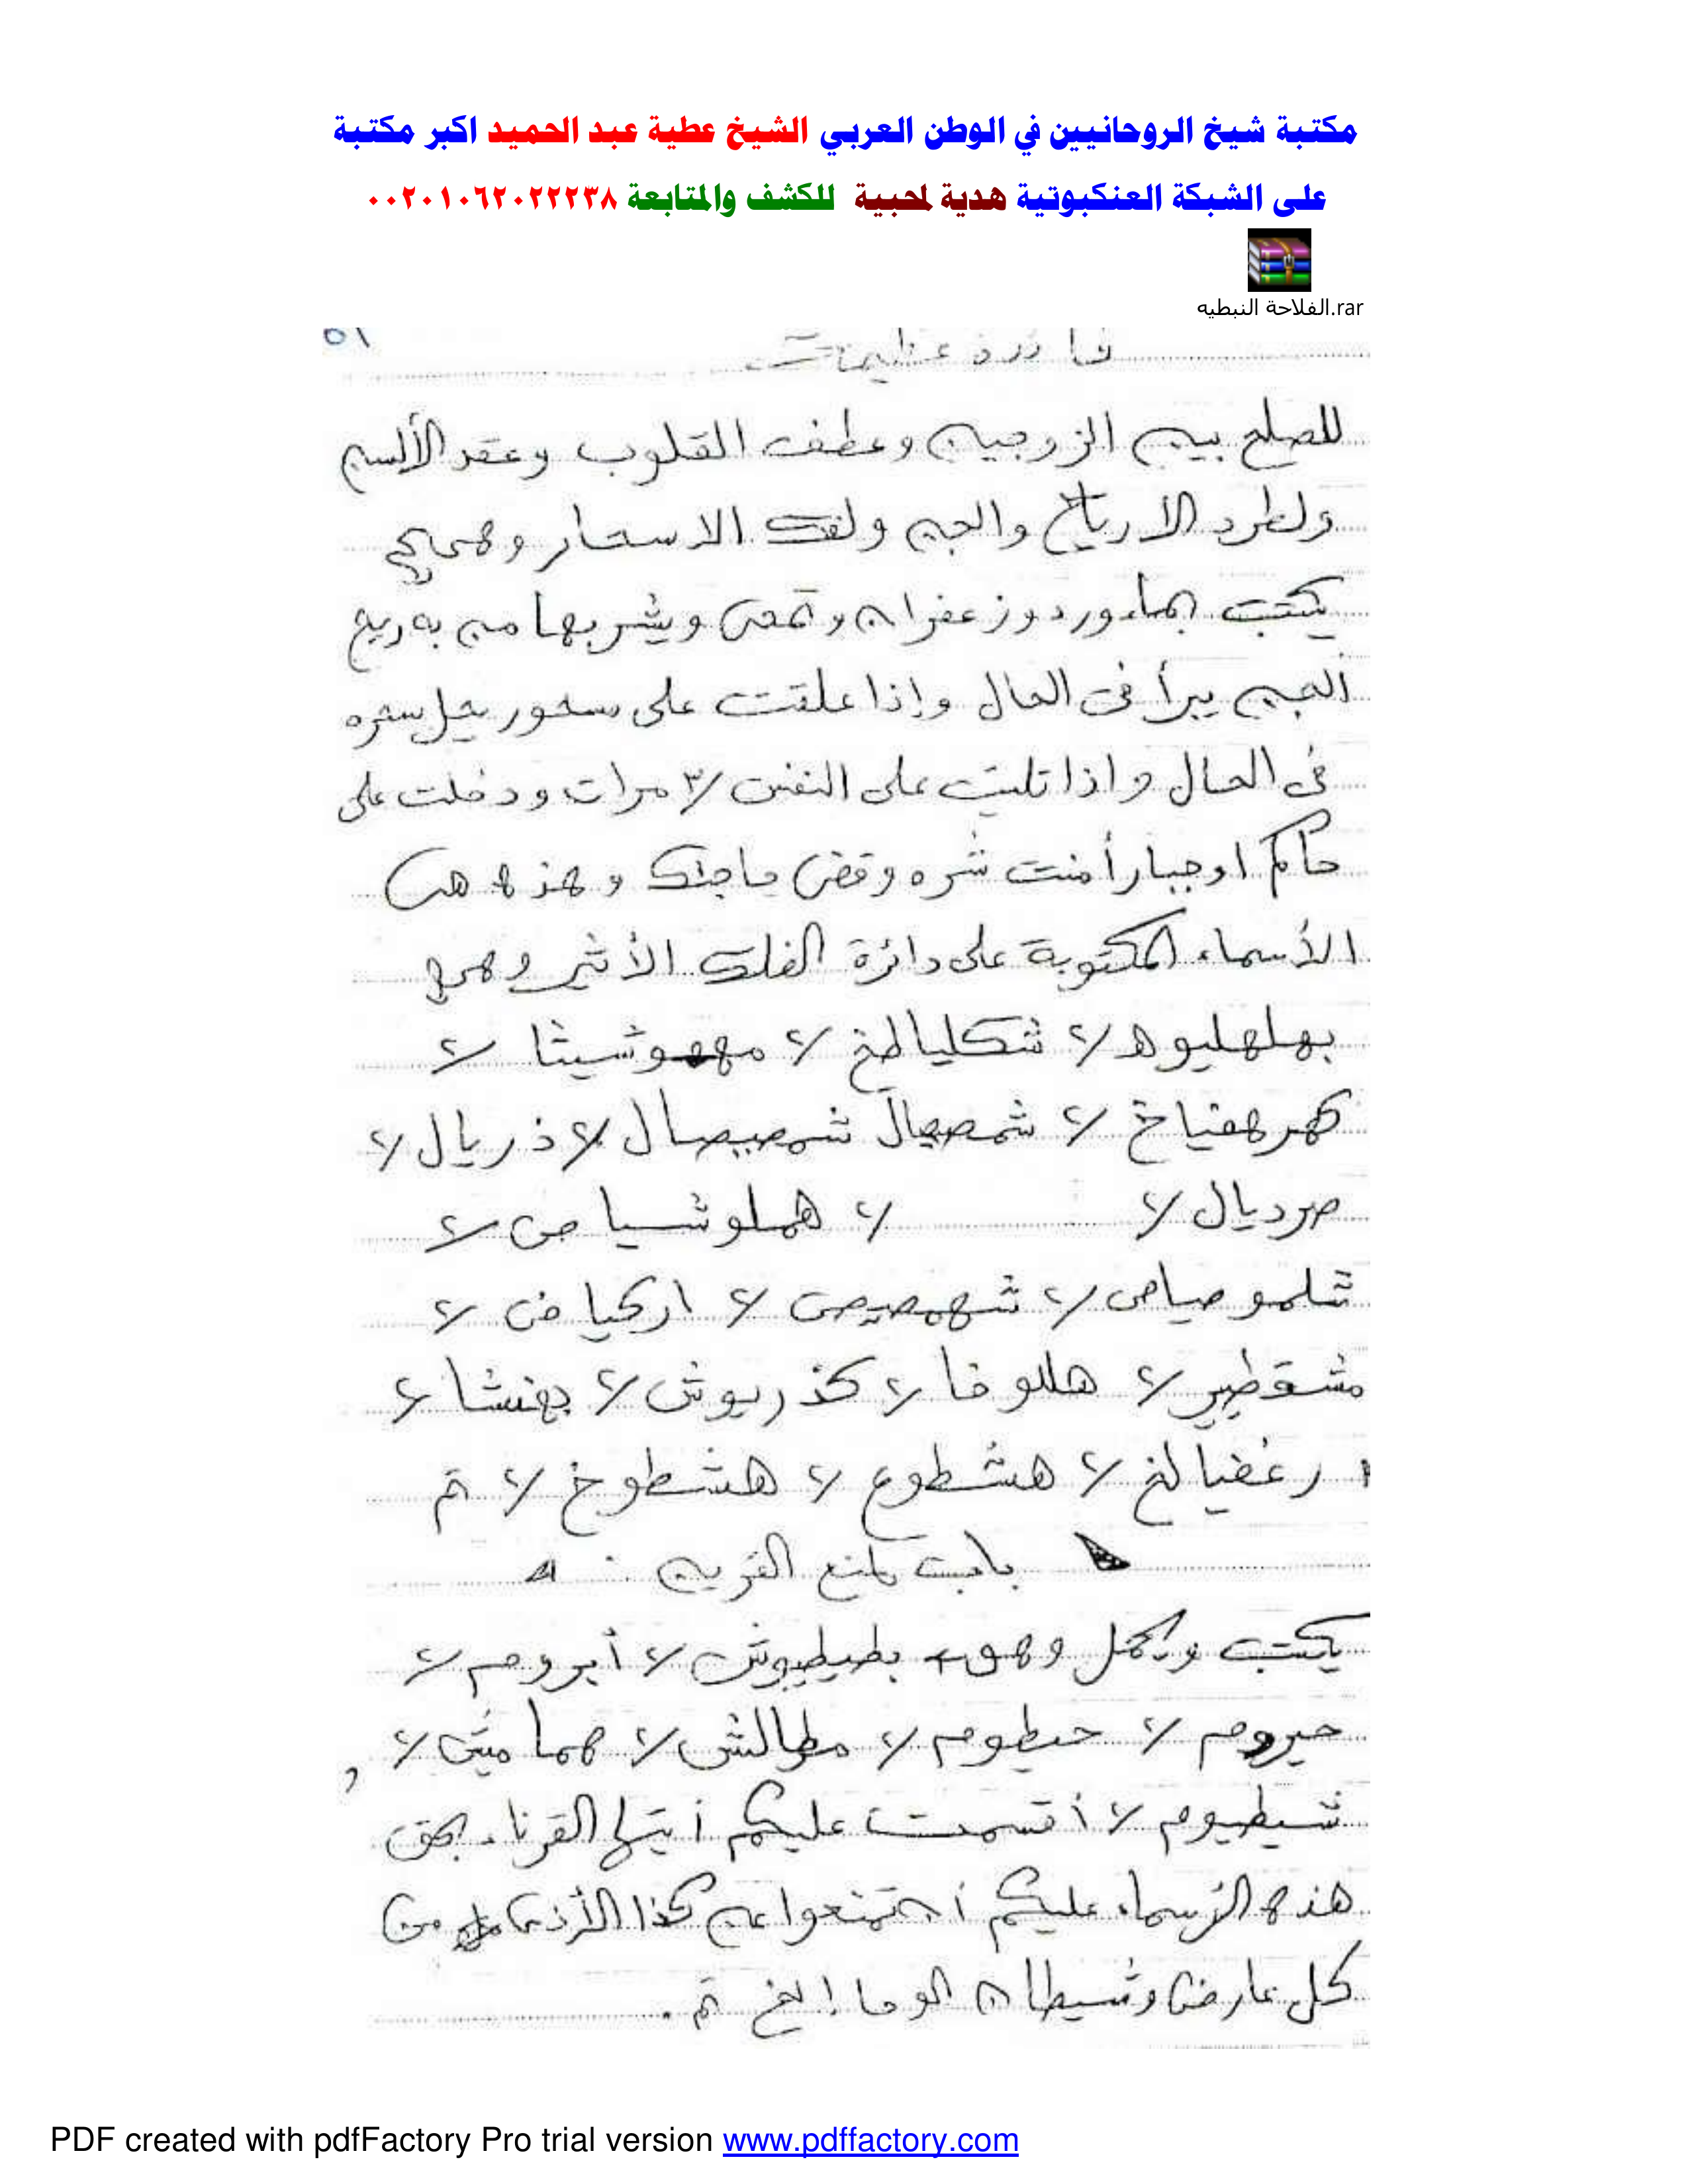 مكتبة شيخ الروحانيين في الوطن العربي الشيخ عطية عبد الحميد اكبر مكتبة
على الشبكة العنكبوتية هدية لمحبية للكشف والمتابعة ٠٠٢٠١٠٦٢٠٢٢٢٣٨
الفلاحة النبطيه.rar
٥١
فائدة عظيمة
للصلح بين الزوجين وعطف القلوب وعقد الألسن
ولطرد الارياح والجن ولفك الاسحار وهى
يكتب بماء ورد وزعفران وتمحى ويشربها من به ريح
الجن يبرأ فى الحال وإذا علقت على مسحور يحل سحره
فى الحال واذا تليت على النفس ٣ مرات ودخلت على
حاكم اوجبار أمنت شره وقضى حاجتك وهذه هى
الأسماء المكتوبة على دائرة الفلك الأثير وهى
بهلهليوه / شكليالخ / مههوشيثا /
كهرهفياخ / شمصيال شمصيصال / ذريال /
صرديال / / هملوشياص /
شلموصياص / شهصيص / اركياض /
مشقطير / هللوفا / كذريوش / بهنشا /
رغفيالخ / هشطوع / هشطوخ / تم
باب منع القرين
يكتب ويحمل وهو بطيطيوش / أبروم /
حيروم / حيطوم / مطالش / هماميش /
شيطيوم / أقسمت عليكم أيتها القرناء بحق
هذه الأسماء عليكم أن تمنعوا عن كذا الأذى من
كل عارض وشيطان الوحا إلخ تم.
PDF created with pdfFactory Pro trial version www.pdffactory.com